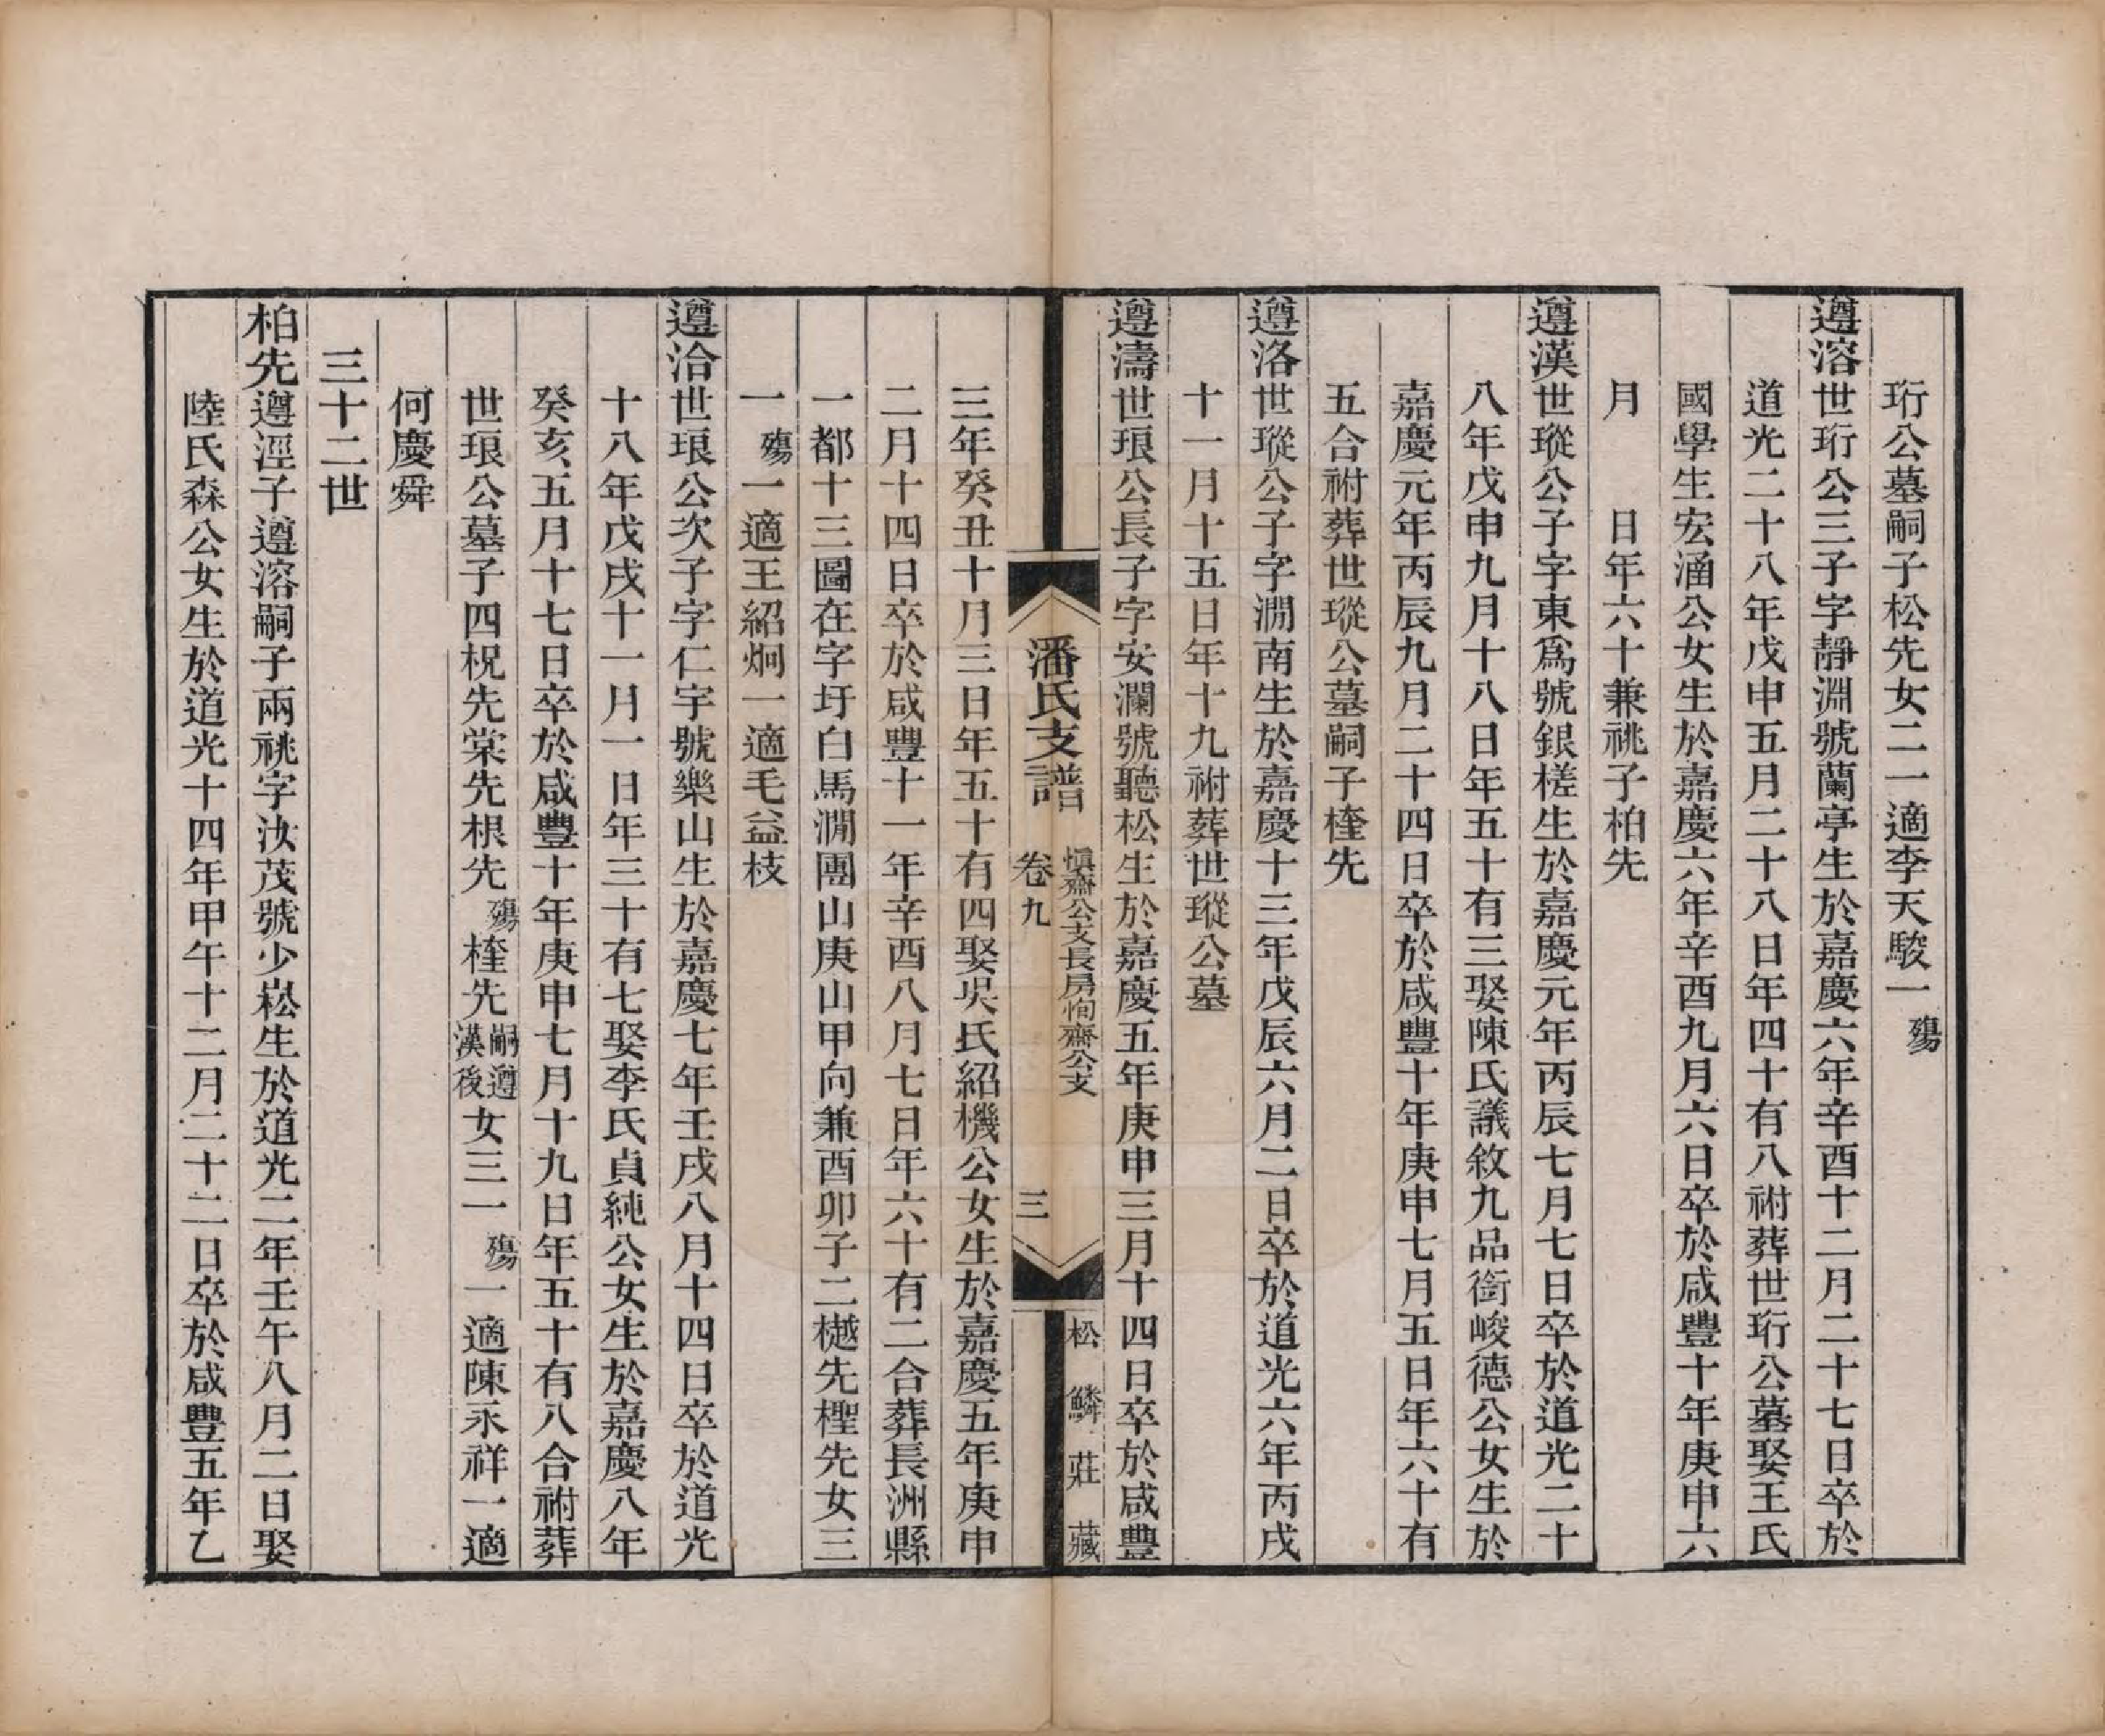 珩公墓嗣子松先女二一適李天駿一殤
遵溶世珩公三子字靜淵號蘭亭生於嘉慶六年辛酉十二月二十七日卒於
道光二十八年戊申五月二十八日年四十有八祔葬世珩公墓娶王氏
國學生宏涵公女生於嘉慶六年辛酉九月六日卒於咸豐十年庚申六
月　　日年六十兼祧子柏先
遵漢世瑽公子字東爲號銀槎生於嘉慶元年丙辰七月七日卒於道光二十
八年戊申九月十八日年五十有三娶陳氏議敘九品銜峻德公女生於
嘉慶元年丙辰九月二十四日卒於咸豐十年庚申七月五日年六十有
五合祔葬世瑽公墓嗣子楏先
遵洛世瑽公子字澗南生於嘉慶十三年戊辰六月二日卒於道光六年丙戌
十一月十五日年十九祔葬世瑽公墓
遵濤世琅公長子字安瀾號聽松生於嘉慶五年庚申三月十四日卒於咸豐
潘氏支譜　卷九　慎齋公支長房恂齋公支　三　松鱗莊藏
三年癸丑十月三日年五十有四娶吳氏紹機公女生於嘉慶五年庚申
二月十四日卒於咸豐十一年辛酉八月七日年六十有二合葬長洲縣
一都十三圖在字圩白馬澗團山庚山甲向兼酉卯子二樾先檉先女三
一殤一適王紹炯一適毛益枝
遵治世琅公次子字仁宇號樂山生於嘉慶七年壬戌八月十四日卒於道光
十八年戊戌十一月一日年三十有七娶李氏貞純公女生於嘉慶八年
癸亥五月十七日卒於咸豐十年庚申七月十九日年五十有八合祔葬
世琅公墓子四柷先棠先根先殤楏先嗣遵漢後女三一殤一適陳永祥一適
何慶舜
三十二世
柏先遵涇子遵溶嗣子兩祧字汝茂號少崧生於道光二年壬午八月二日娶
陸氏森公女生於道光十四年甲午十二月二十二日卒於咸豐五年乙